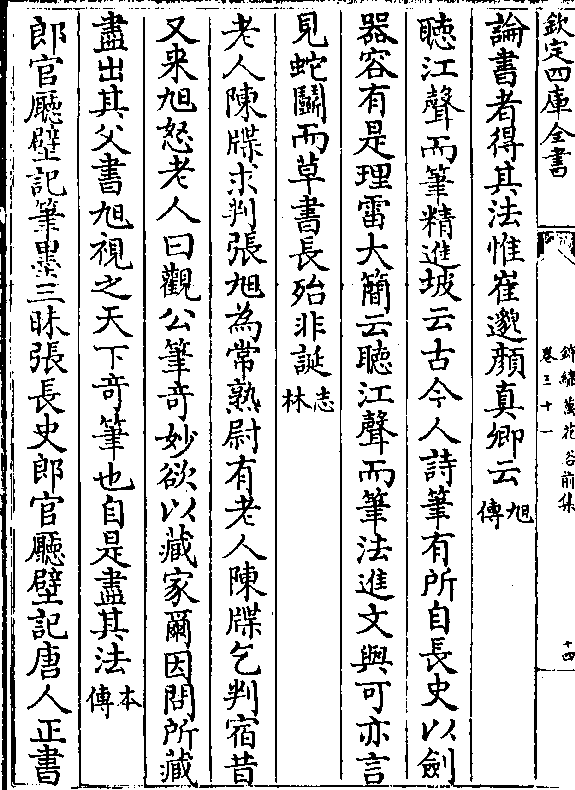 欽定四庫全書
錦繡萬花谷前集
卷三十一
十四
論書者得其法惟崔邈顔真卿云旭傳
聽江聲而筆精進坡云古今人詩筆有所自長史以劍
器容有是理雷大簡云聽江聲而筆法進文與可亦言
見蛇鬬而草書長殆非誕志林
老人陳牒求判張旭為常熟尉有老人陳牒乞判宿昔
又来旭怒老人曰觀公筆竒妙欲以藏家爾因問所藏
盡出其父書旭視之天下竒筆也自是盡其法本傳
郎官廳壁記筆墨三昧張長史郎官廳壁記唐人正書